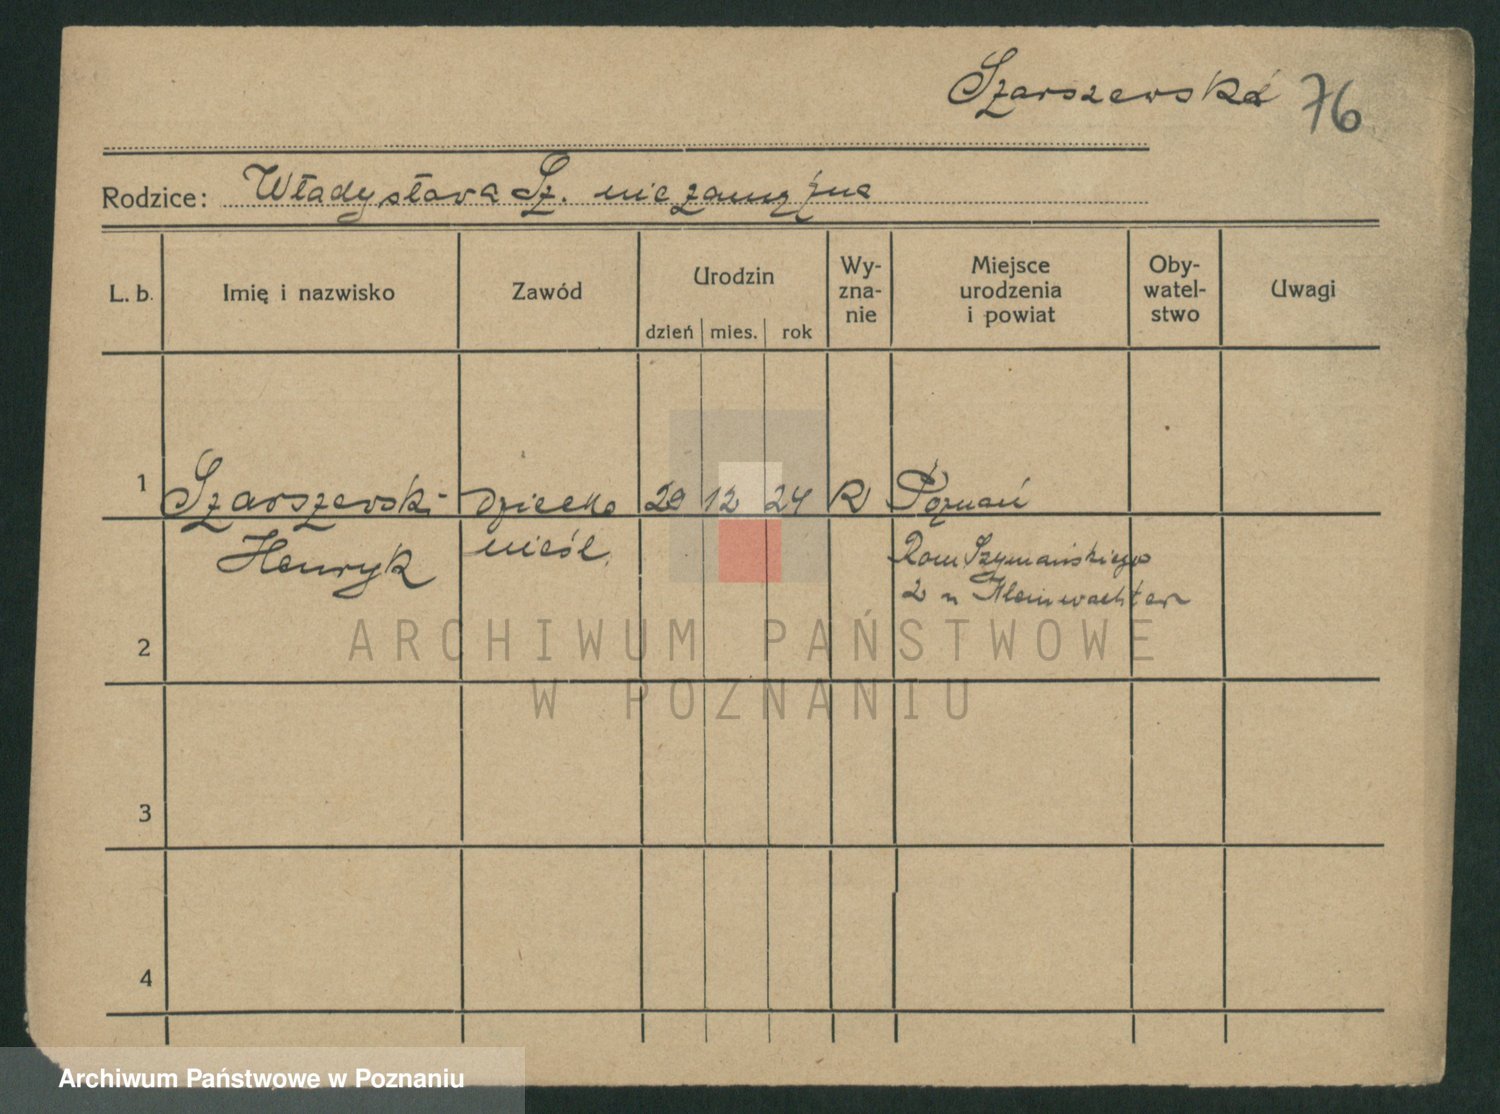 Szarszewska 76
Rodzice: Władysława Sz. niezamężna
L. b. Imię i nazwisko Zawód Urodzin Wy- Miejsce Oby- Uwagi
zna- urodzenia watel-
nie i powiat stwo
dzień mies. rok
1 Szarszewski Dziecko 29 12 24 R Poznań
Henryk nieśl.
Rom Szymańskiego
2 n Kleinwachter
2
ARCHIWUM PAŃSTWOWE
W POZNANIU
3
4
Archiwum Państwowe w Poznaniu